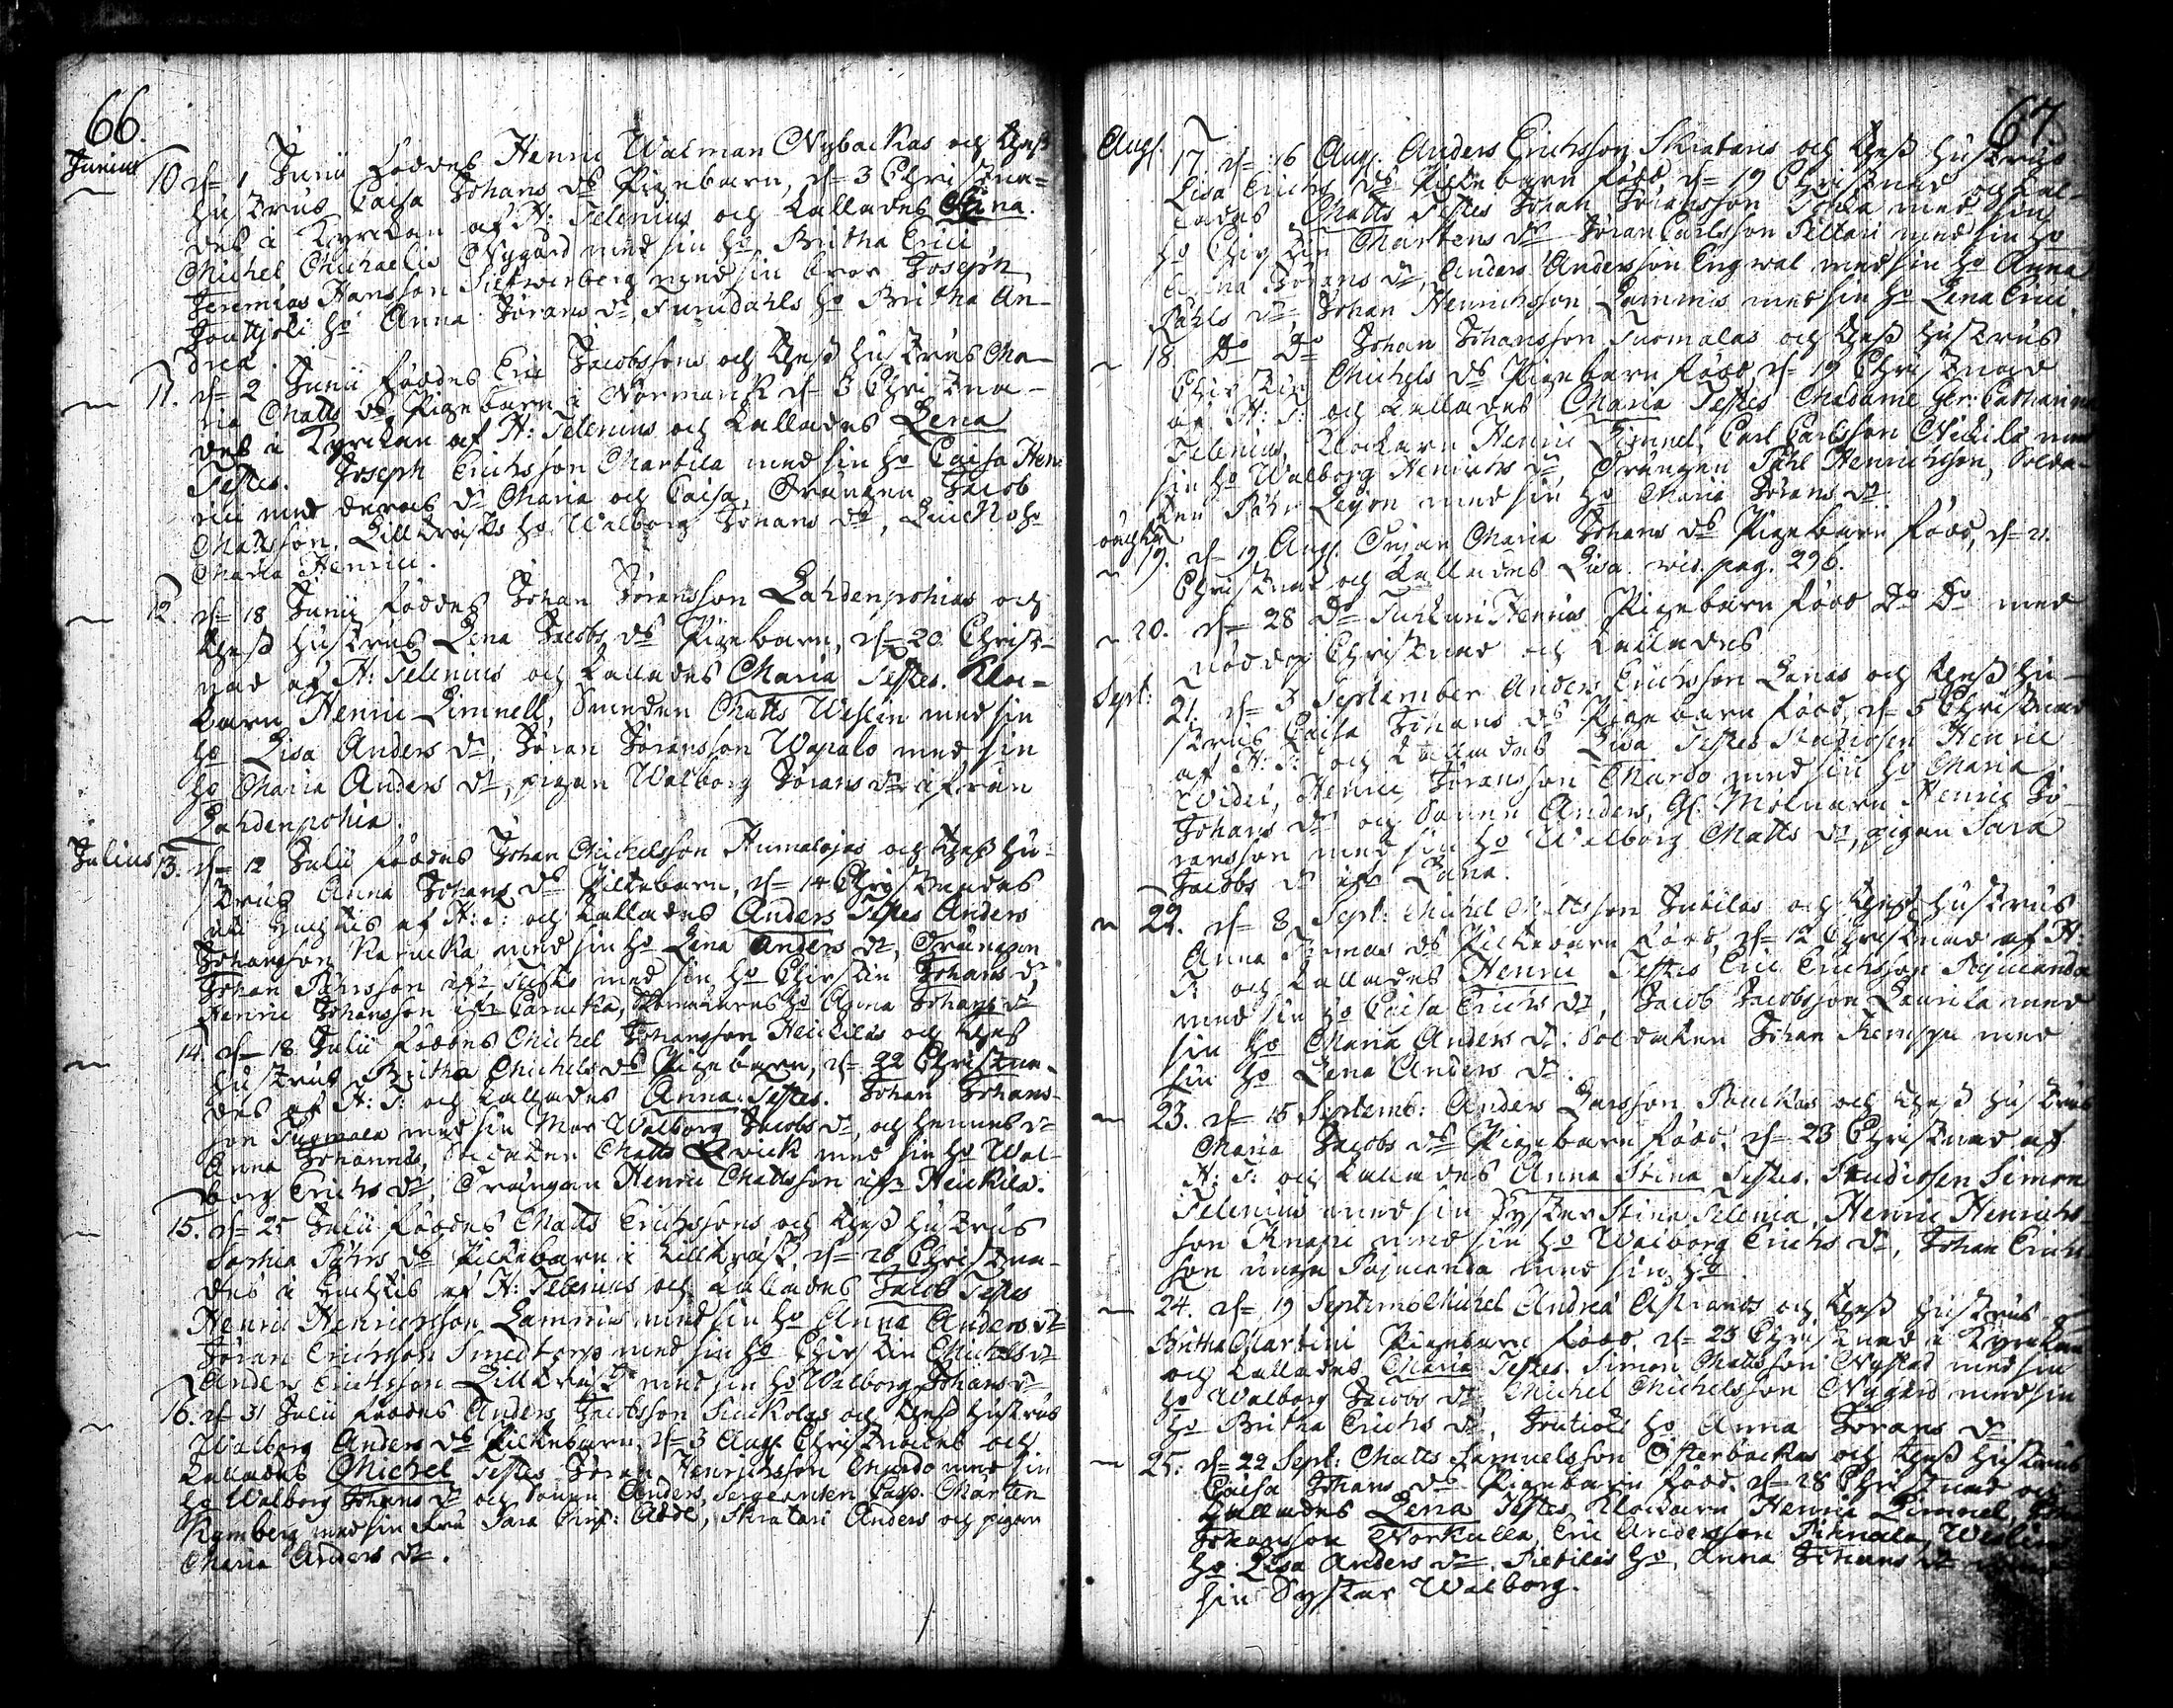 66.
Junius
10 d= 1 Junii föddes Henric Walman Nybackas och thess
hustrus Caisa Johans ds Pigebarn, d= 3 Christna=
des i Kyrckan af H: Selenius och kallades Stina.
Michel Michaelis Nygård med sin ho Britha Erici,
Jeremias Hansson med sin bror Joseph
ho Anna Jörans dr, ho Britha An-
drea.
11. d= 2 Junii föddes Eric Jacobssons och thess hustrus Ma-
ria Matts ds Pigebarn i Normark d= 3 Christna-
des i Kyrckan af H: Selenius och kallades Lena
Testes. Joseph Erichsson Markila med sin ho Caisa Hen-
rici med deras dr Maria och Caisa, Drängen Jacob
Mattsson, Lillträsks ho Walborg Johans dr, ho
Maria Henrici.
12. d= 18 Junii föddes Johan Jöransson Lahdenpohias och
thess hustrus Lena Jacobs ds Pigebarn, d= 20 Christ-
nad af H: Selenius och kallades Maria Testes. Kloc=
karn Henric Limnell, Smeden Matts Weslin med sin
ho Lisa Anders dr, Jöran Jöransson Wapalo med sin
ho Maria Anders dr, pigan Walborg Jörans dr ifrån
Lahdenpohia.
Julius 13. d= 12 Julii föddes Johan Michelsson Humalojas och thess hu-
strus Anna Johans ds Piltebarn, d= 14 Christnades
af H: S: och kallades Anders Testes Anders
Johansson Karucka med sin ho Lena Anders dr, Drängen
Johan Påhrsson med sin ho Chirstin Johans dr,
Henric Johansson ifr Carucka, ho Anna Johans dr
14. d= 18 Julii föddes Michel Johansson Heickiläs och thess
hustrus Britha Michels ds Pigebarn, d= 22 Christna-
des af H: S: och kallades Anna. Testes. Johan Johans-
son Tuomala med sin Mor Walborg Jacobs dr, och hennes dr
Anna Johannis, Soldaten Matts Qvick med sin ho Wal-
borg Erichs dr, Drängen Henric Mattsson ifr Heickilä.
15. d= 25 Julii föddes Matts Erichssons och thess hustrus
Sophia Påhrs ds Piltebarn i Lillträsk, d= 26 Christna-
des i af H: Selenius och kallades Jacob Testes
Henric Henrichsson Lammis med sin ho Anna Anders dr
Jöran Erichsson Smedtorp med sin ho Chirstin Michels dr
Anders Erichsson Lillträsk med sin ho Walborg Johans dr
16. d= 31 Julii föddes Anders Jacobsson och thess hustrus
Walborg Anders ds Piltebarn, d= 3 Aug. Christnades och
kallades Michel Testes Jöran Henrichsson Mardo med sin
ho Walborg Johans dr och Sonen Anders, Sergeanten Casp. Marten
med sin fru Sara Abde, Skratari Anders och pigan
Maria Anders dr.
67
Aug. 17. d= 16 Aug. Anders Erichsson Skrataris och thess hustrus
Lisa Erichs ds Piltebarn född d= 19 Christnad och kal-
lades Matts Testes Johan Jöransson med sin
ho Chirstin Mårtens dr Jöran Carlsson med sin ho
Jörans dr, Anders Andersson Engwal med sin ho Anna
Påhls dr Johan Henrichsson Lammis med sin ho Lena Erici
18. Do Do Johan Johansson Tuomalas och thess hustrus
Chirstin Michels ds Pigebarn född, d= 19 Christnad
af H: S: och kallades Maria Testes Madame Catharina
Selenius, Klockarn Henric Limnel, Carl Carlsson Mickilä med
sin ho Walborg Henrichs dr Drängen Påhl Henrichsson, Solda-
ten Påhr Lejon med sin ho Maria Jörans dr
oächta
19. d= 19 Aug. Pigan Maria Johans ds Pigebarn född, d= 21
Christnad och kallades Lisa. vid. pag. 296.
20. d= 28 Do Henrics Pigebarn född Do Do med
nöddop Christnad och kallades
Sept: 21. d= 3 September Anders Erichsson Lanas och thess hu-
strus Caisa Johans ds Pigebarn född, d= 5 Christnad
af H: S: och kallades Lisa Testes Studiosen Henric
Widei, Henric Jöransson Mardo med sin ho Maria
Johans dr och Sonen Anders, Gl. Mölnarn Henric Jö-
ransson med sin ho Walborg Matts dr, pigan Sara
Jacobs dr ifr Lana.
22. d= 8 Sept: Michel Mattsson Jutilas och thess hustrus
Anna Thomas ds Piltebarn född, d= 12 Christnad af H:
S: och kallades Henric Testes Eric Erichsson Pajucanda
med sin ho Caisa Erichs dr, Jacob Jacobsson Laurila med
sin ho Maria Anders dr. Soldaten Johan Kempe med
sin ho Lena Anders dr.
23. d= 15 Septemb: Anders Larsson Pauckos och thess hustrus
Maria Jacobs ds Pigebarn född, d= 23 Christnad af
H: S: och kallades Anna Stina Testes. Studiosen Simon
Selenius med sin Syster Stina Selenia, Henric Henrichs-
son Knapi med sin ho Walborg Erichs dr, Johan Erichs-
son unga Pajucanda med sin ho
24. d= 19 Septemb Michel Andreæ och thess hustrus
Britha Martini Pigebarn född, d= 23 Christnad i Kyrckan
och kallades Maria Testes. Simon Mattsson Nystad med sin
ho Walborg Jacobs dr Michel Michelsson Nygård med sin
ho Britha Erichs dr, ho Anna Jörans dr
25. d= 22 Sept: Matts Samuelsson Österbackas och thess hustrus
Caisa Johans ds Pigebarn född, d= 28 Christnad och
kallades Lena Testes Klockarn Henric Limnel,
Johansson Norkulla, Eric Andersson Pihnala, Weslins
ho Lisa Anders dr, Pietiläs ho, Anna Johans dr
sin Syster Walborg.